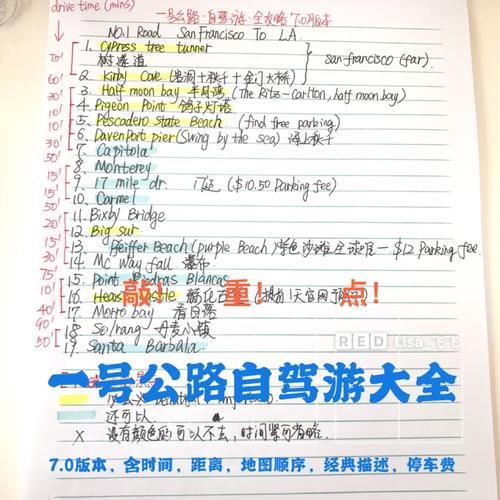 drive time (mins)
一号公路·自驾·游·全攻略 7.0版本
No.1 Road San Francisco To LA.
70' 1. Cypress tree tunner
树遂道
60' 2. Kirby Cove
San francisco (far)
3. Half moon bay 半月湾 (The Ritz-Carlton, half moon bay)
4. Pigeon Point 鸽子灯塔
5. Pescadero State Beach (find free parking)
6. Davenport pier (Swing by the sea) 海上秋千
7. Capitola
8. Monterey
9. 17 mile dr. ($10.50 Parking fee)
10. Carmel
11. Bixby Bridge
12. Big sur
13. Pfeiffer Beach (purple Beach) 紫色沙滩 $12 Parking fee.
14. Mc Way fall 瀑布
15. Point Piedras Blancas
16. Hearst Castle
17. Morro bay 看日落
18. Solvang 丹麦小镇
19. Santa Barbala.
敲！重！点！
RED Lisa
一号公路自驾游大全
还可以
X 没有颜色的可以不去，时间紧可省略.
7.0版本，含时间，距离，地图顺序，经典描述，停车费